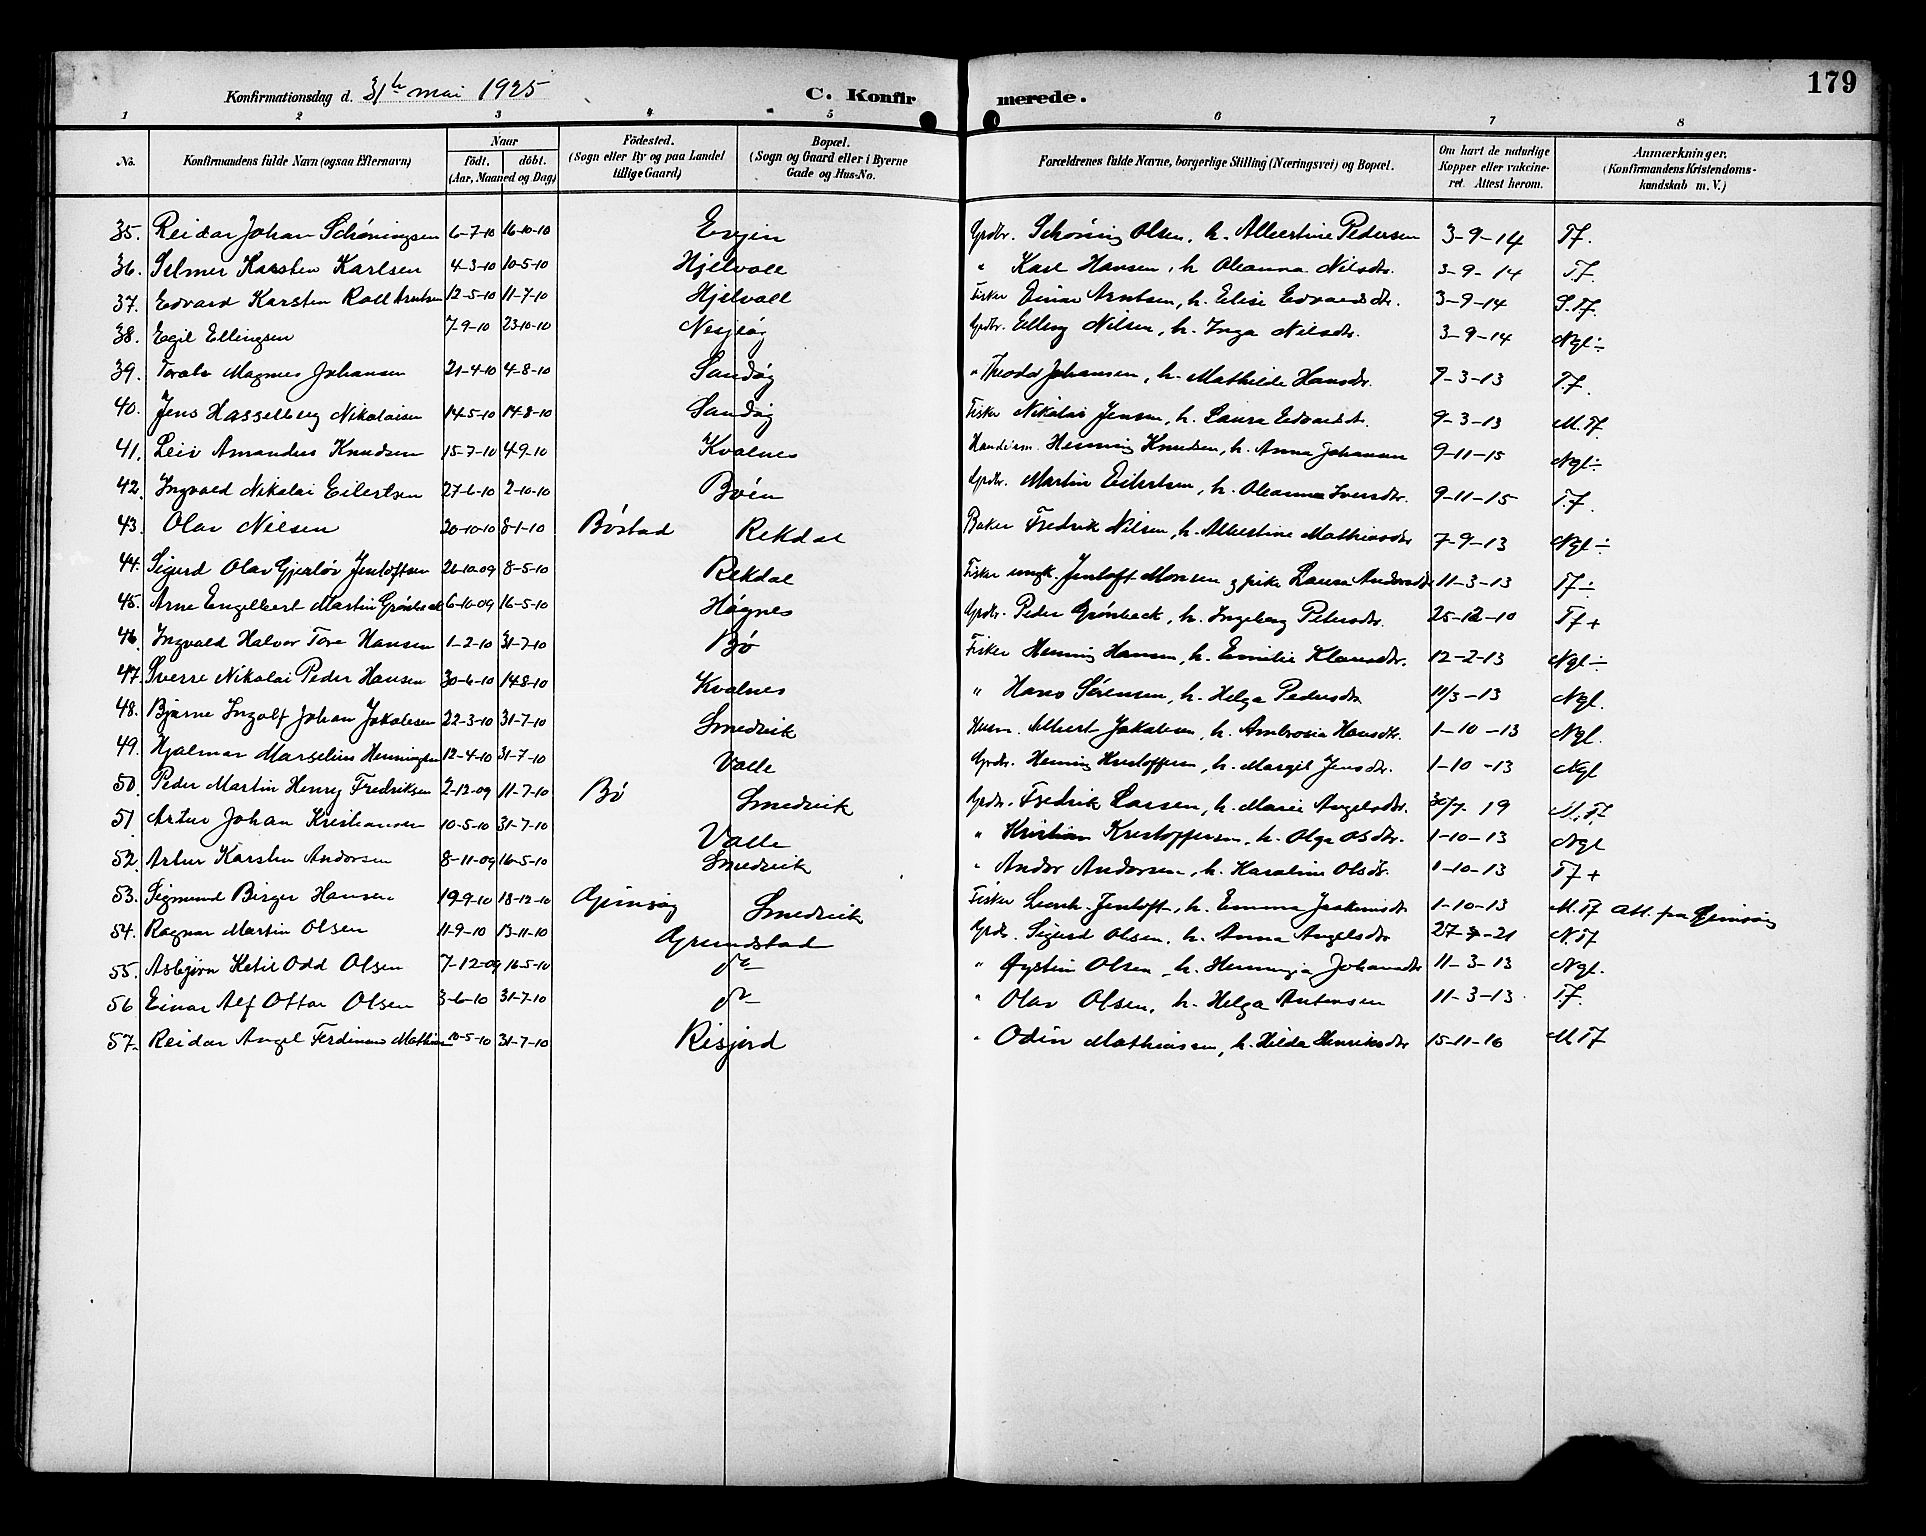 179
Konfirmationsdag d. 31te mai 1925 C. Konfirmerede.
1 2 3 4 5 6 7 8
No. Konfirmandens fulde Navn (ogsaa Efternavn) Naar födt. döbt. (Aar, Maaned og Dag) Födested. (Sogn eller By og paa Landet tillige Gaard) Bopæl. (Sogn og Gaard eller i Byerne Gade og Hus-No. Forældrenes fulde Navne, borgerlige Stilling (Næringsvei) og Bopæl. Om havt de naturlige Kopper eller vakcineret. Attest herom. Anmærkninger. (Konfirmandens Kristendomskundskab m. V.)
35. Reidar Johan Schøningsen 6-7-10 16-10-10 Evjen Grdbr. Schøning Olsen, h. Albertine Pedersen 3-9-14 Tf.
36. Selmer Karsten Karlsen 4-3-10 10-5-10 Hjelvoll " Karl Hansen, h. Oleanna Nilsdtr. 3-9-14 Tf.
37. Edvard Karsten Roll Arntsen 12-5-10 11-7-10 Hjelvoll Fisker Einar Arntsen, h. Elise Edvardsdtr. 3-9-14 S.Tf.
38. Egil Ellingsen 7-9-10 23-10-10 Nesje Grdbr. Elling Nilsen, h. Inga Nilsdtr. 3-9-14 Ngl÷
39. Toralv Magnus Johansen 21-4-10 4-8-10 Sandøy " Theodor Johansen, h. Mathilde Hansdtr. 9-3-13 T.f.
40. Jens Hasselberg Nikolaisen 14-5-10 14-8-10 Sandøy Fisker Nikolai Jensen, h. Laura Edvardsdt. 9-3-13 M.Tf.
41. Leiv Amandus Knudsen 15-7-10 4-9-10 Kvalnes Henning Knudsen, h. Anna Johansen 9-11-15 Ngl÷
42. Ingvald Nikolai Eilertsen 27-6-10 2-10-10 Bøen Grdbr. Martin Eilertsen, h. Oleanna Iversdtr. 9-11-15 T.f.
43. Olav Nilsen 20-10-10 8-1-10 Bøstad Rekdal Baker Fredrik Nilsen, h. Albertine Mathiasdtr 7-9-13 Ngl÷
44. Sigurd Olav Gjerløv Jentoftsen 26-10-09 8-5-10 Rekdal Fisker ungk. Jentoft Monsen og pike Laura Andersdtr 11-3-13 Tf÷
45. Arne Engelbert Martin Grønbeck 6-10-09 16-5-10 Høgnes Grdbr. Peder Grønbeck, h. Ingeborg Petersdtr. 25-12-10 Tf+
46. Ingvald Halvor Tore Hansen 1-2-10 31-7-10 Bø Fisker Henning Hansen, h. Emilie Klausdtr. 12-2-13 Ngl÷
47. Sverre Nikolai Peder Hansen 30-6-10 14-8-10 Kvalnes " Hans Sørensen, h. Helga Pedersdtr 11/3-13 Ngl.
48. Bjarne Ingolf Johan Jakobsen 22-3-10 31-7-10 Smedvik Husm. Albert Jakobsen, h. Ambrosia Hansdtr. 1-10-13 Ngl.
49. Hjalmar Marselius Henningsen 12-4-10 31-7-10 Valle Grdbr. Henning Kristoffersen, h. Margit Jensdtr. 1-10-13 Ngl
50. Peder Martin Henry Fredriksen 2-12-09 11-7-10 Bø Smedvik Grdbr. Fredrik Larsen, h. Marie Angelsdtr. 30/7 19 M.Tf
51 Artur Johan Kristiansen 10-5-10 31-7-10 Valle " Kristian Kristoffersen, h. Olga Olsdtr. 1-10-13 Ngl
52. Artur Karsten Andorsen 8-11-09 16-5-10 Smedvik " Andor Andorsen, h. Karoline Olsdt. 1-10-13 Tf+
53. Sigmund Birger Hansen 19-9-10 18-12-10 Gimsøy Smedvik Fisker Leonh. Jentoft, h. Emma Joakimsdt 1-10-13 M.Tf Att. fra Gimsøy
54. Ragnar Martin Olsen 11-9-10 13-11-10 Grundstad Grdbr. Sigurd Olsen, h. Anna Angelsdtr 27-9-21 N.Tf
55. Asbjørn Ketil Odd Olsen 7-12-09 16-5-10 do " Øystein Olsen, h. Henninja Johansdtr 11-3-13 Ngl.
56 Einar Alf Ottar Olsen 3-6-10 31-7-10 do " Olav Olsen, h. Helga Antonsen 11-3-13. Tf.
57. Reidar Angel Ferdinand Mathisen 10-5-10 31-7-10 Risjord " Odin Mathiassen, h. Hilda Henriksdtr 15-11-16 M.Tf